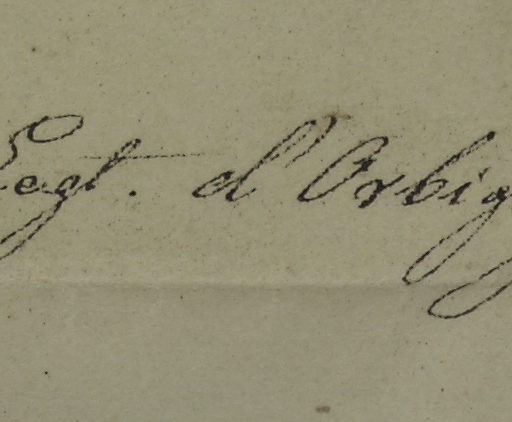 Legt. d'Orbig